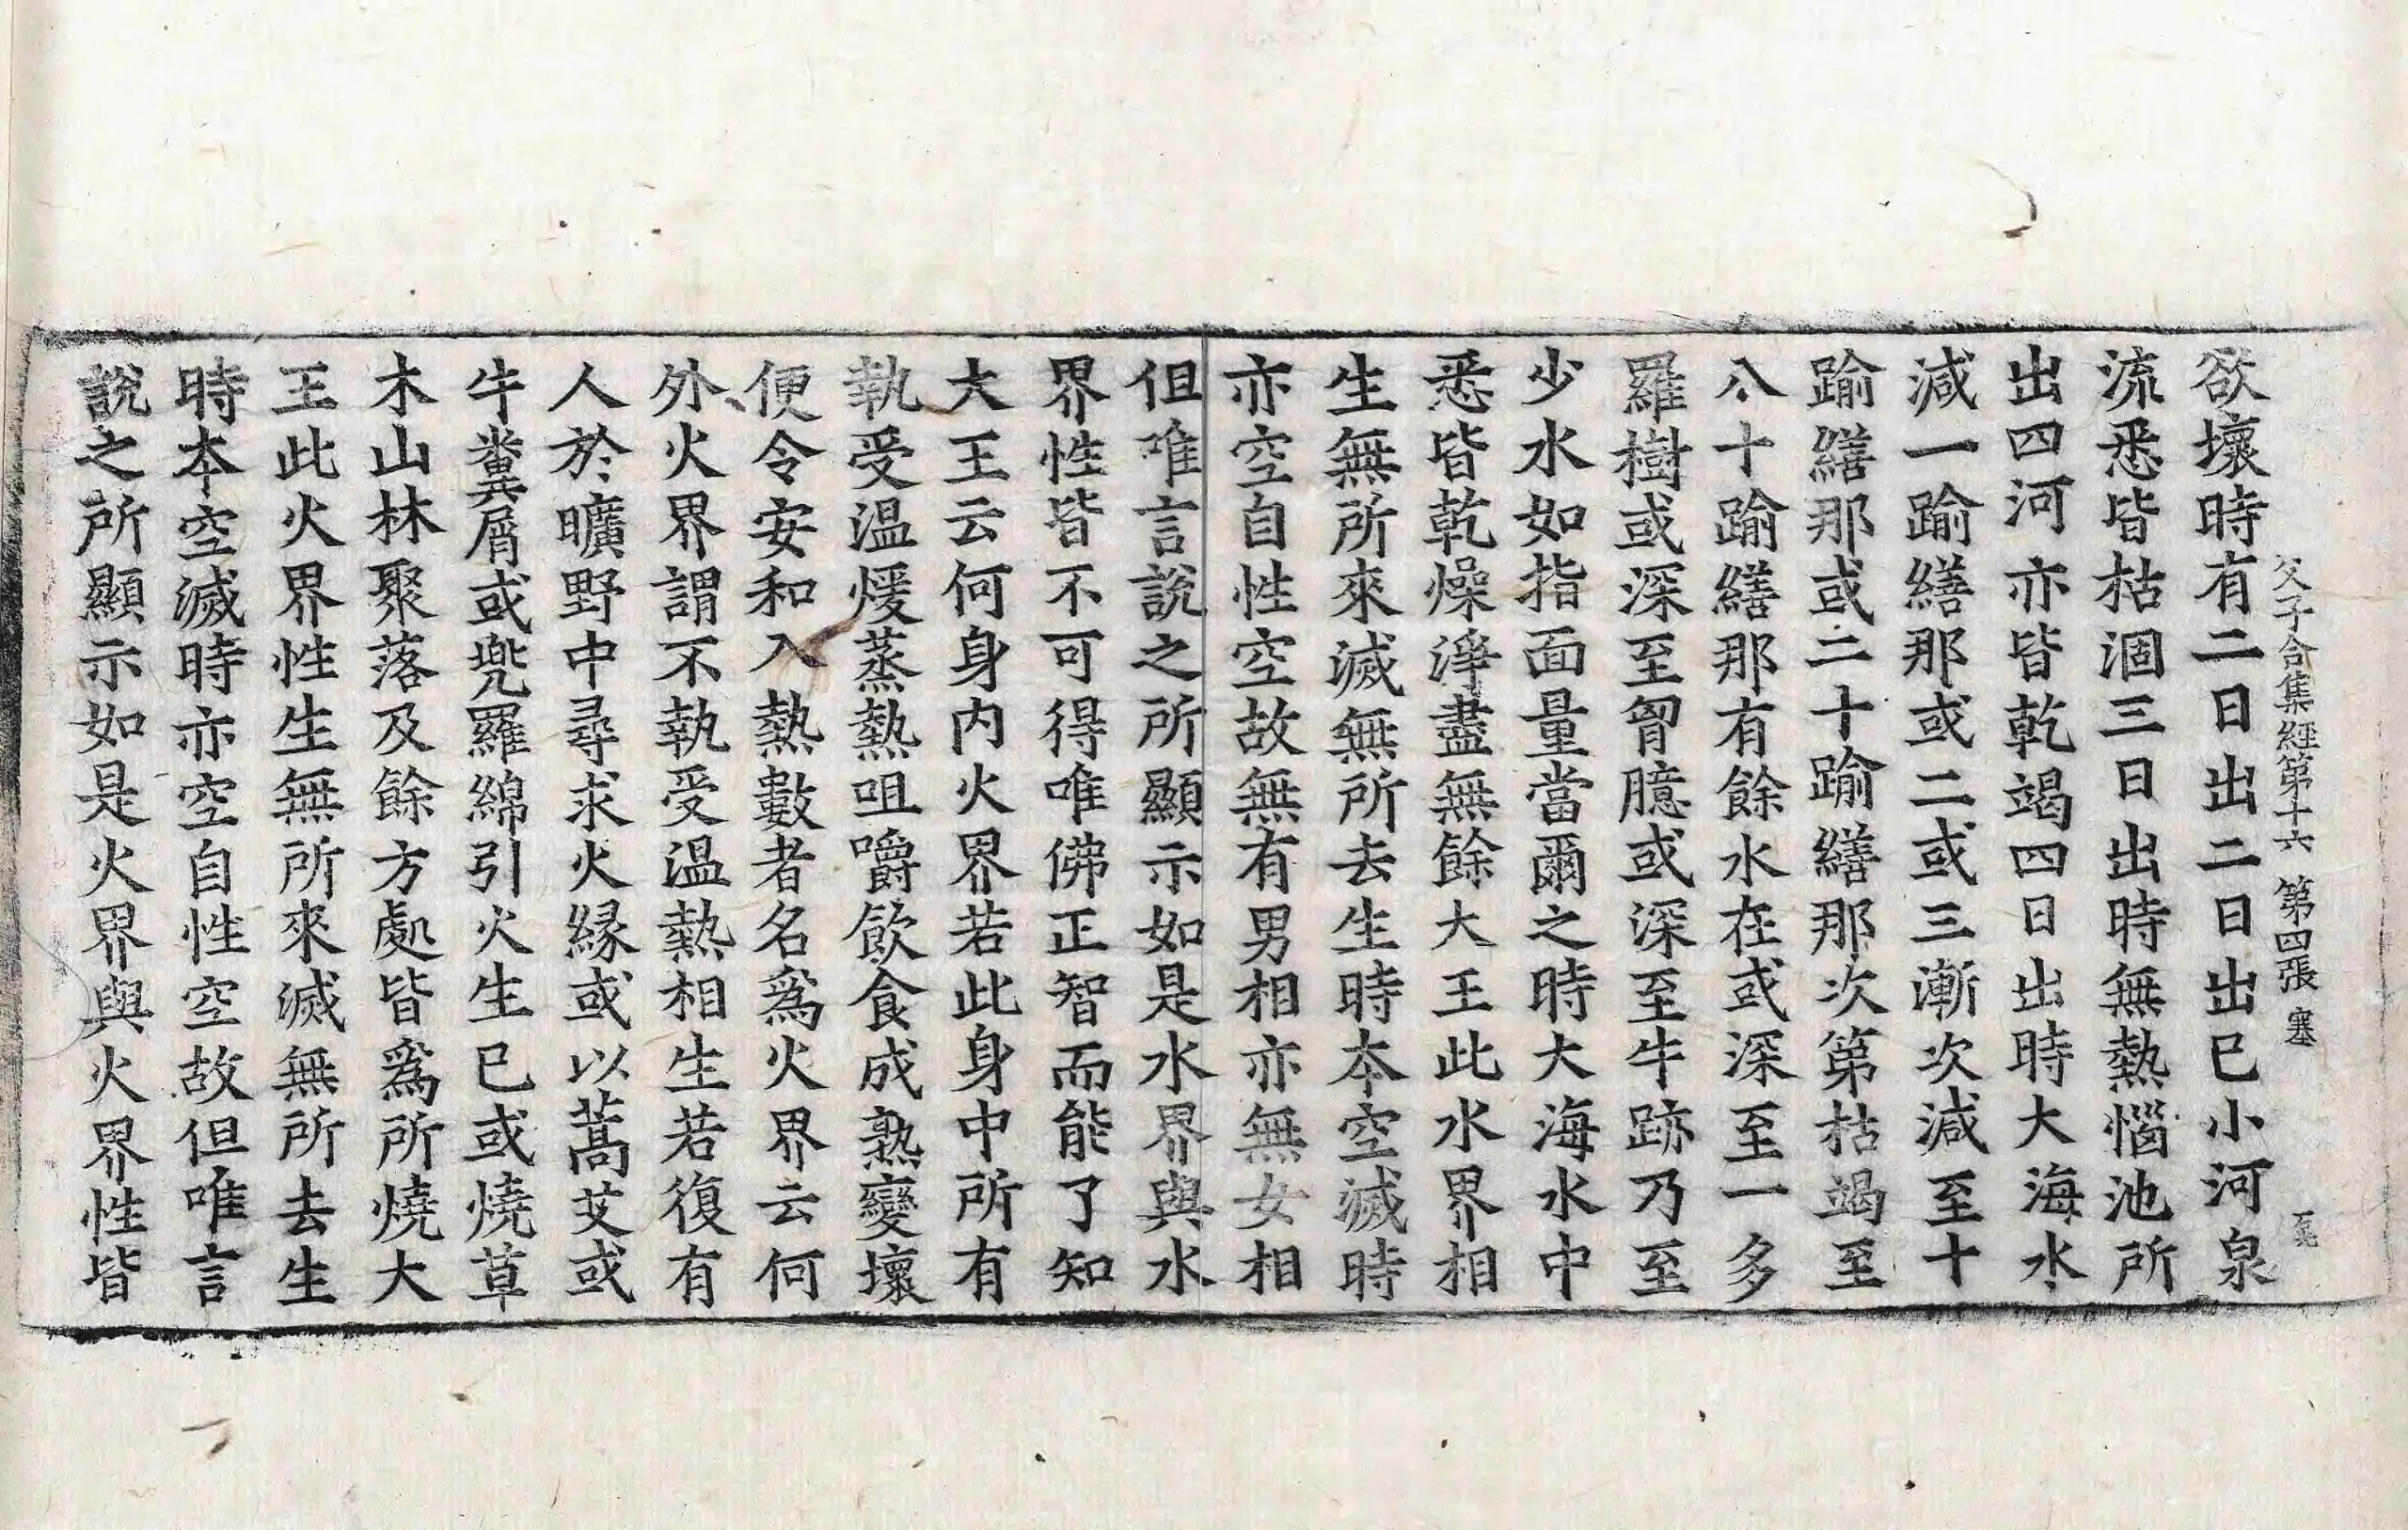 父子合集經第十六 第四張 塞
欲壞時有二日出二日出已小河泉
流悉皆枯涸三日出時無熱惱池所
出四河亦皆乾竭四日出時大海水
減一踰繕那或二或三漸次減至十
踰繕那或二十踰繕那次第枯竭至
八十踰繕那有餘水在或深至一多
羅樹或深至胷臆或深至牛跡乃至
少水如指面量當爾之時大海水中
悉皆乾燥淨盡無餘大王此水界相
生無所來滅無所去生時本空滅時
亦空自性空故無有男相亦無女相
但唯言說之所顯示如是水界與水
界性皆不可得唯佛正智而能了知
大王云何身内火界若此身中所有
執受温煖蒸熱咀嚼飲食成熟變壞
便令安和入熱數者名爲火界云何
外火界謂不執受温熱相生若復有
人於曠野中尋求火緣或以蒿艾或
牛糞屑或兠羅綿引火生已或燒草
木山林聚落及餘方處皆爲所燒大
王此火界性生無所來滅無所去生
時本空滅時亦空自性空故但唯言
說之所顯示如是火界與火界性皆